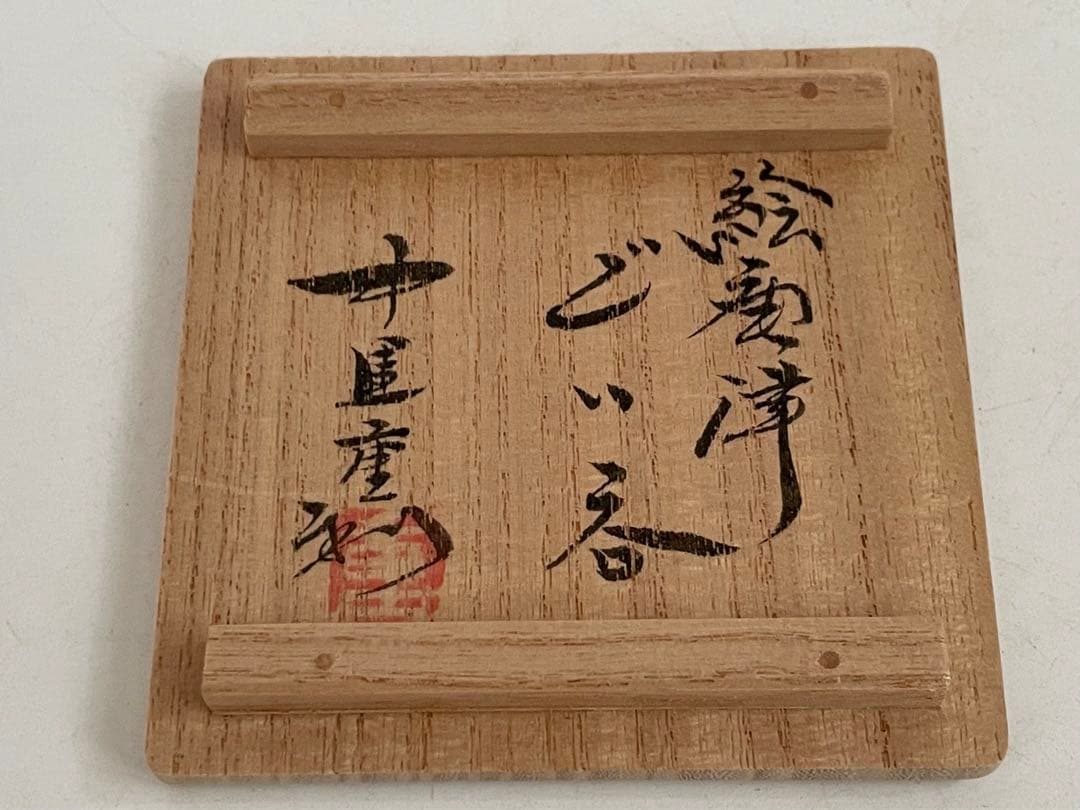 絵唐津
ぐい呑
中里重利